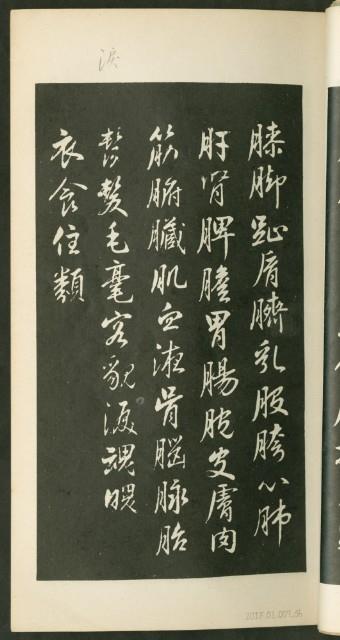 涙
膝脚趾肩臍乳股胯心肺
肝腎脾膽胃腸脱皮膚肉
筋腑臓肌血液骨脳脉胎
鬚髪毛毫容貌涙魂魄
衣食住類
2017.01.007.56